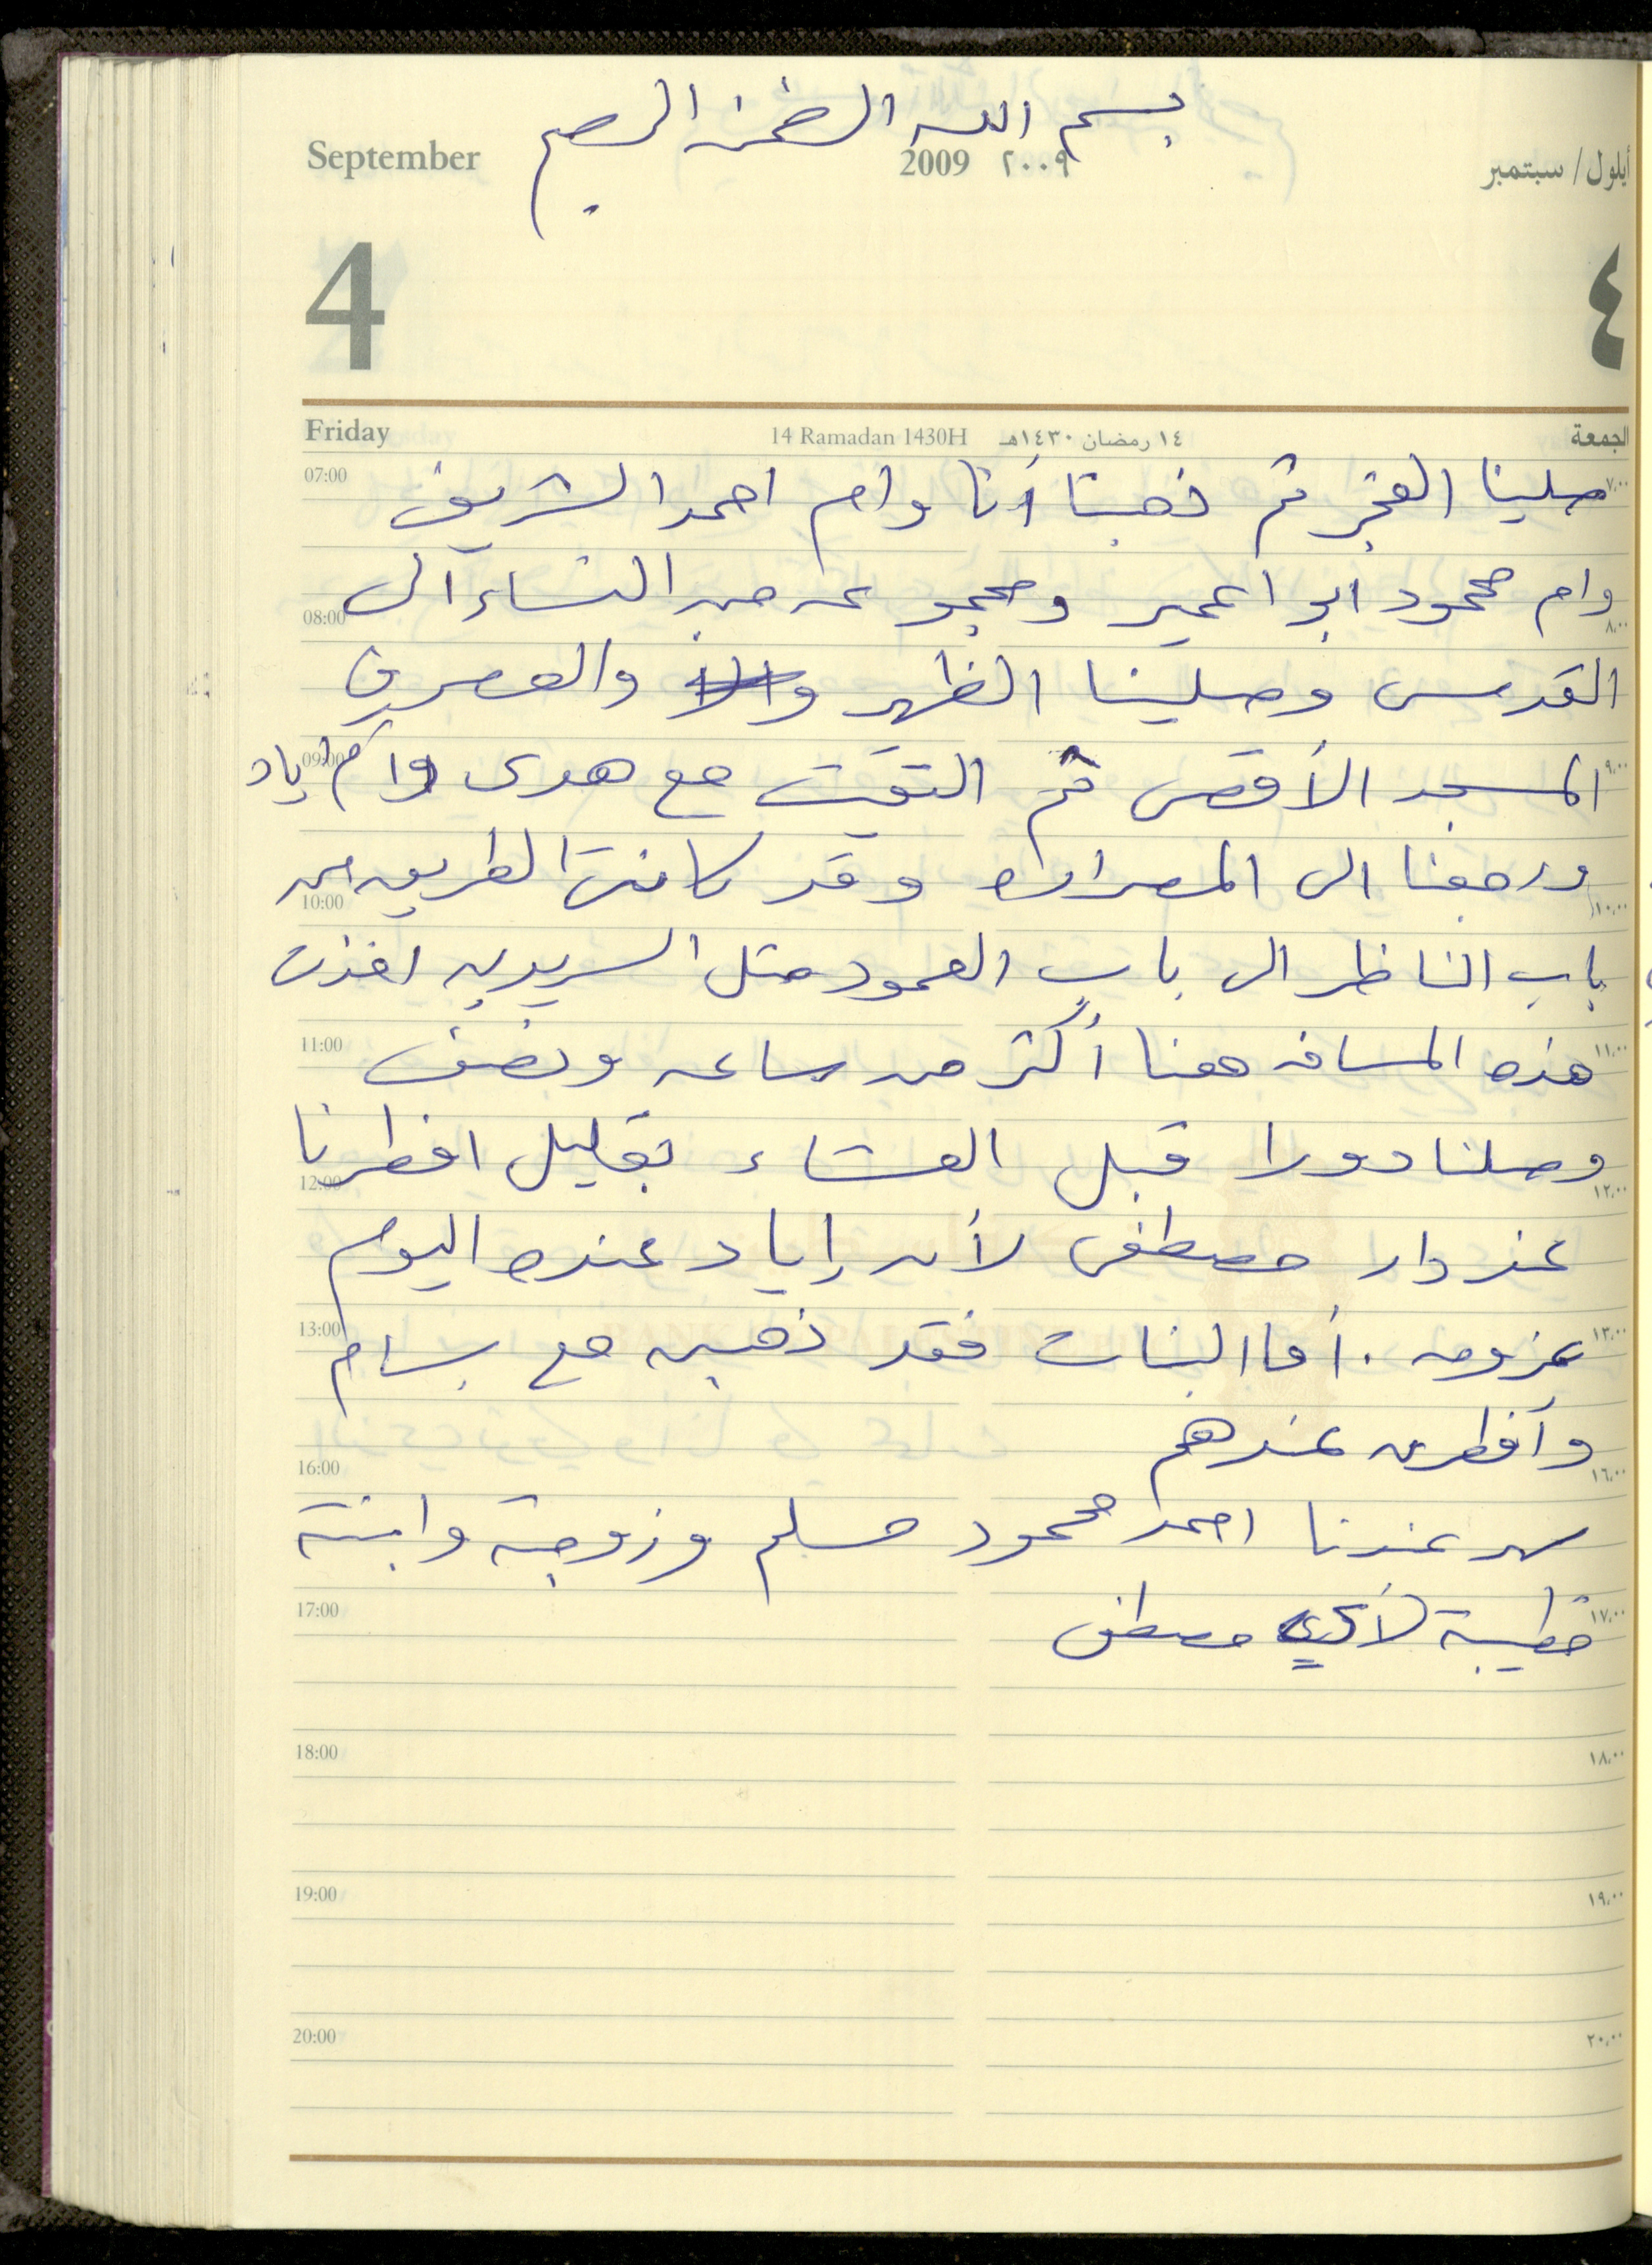 بسم الله الرحمن الرحيم
September 2009 ٢٠٠٩ أيلول/سبتمبر
4 ٤
Friday 14 Ramadan 1430H ١٤ رمضان ١٤٣٠هـ الجمعة
07:00 ٧،٠٠
صلينا الفجر ثم ذهبنا أنا وام احمد الشريف
وام محمود ابو اعمير ومجموعه من النساء الى
08:00 ٨،٠٠
القدس وصلينا الظهر والعصر في
09:00 ٩،٠٠
المسجد الأقصى ثم التقيت مع هدى وأم إياد
ورجعنا الى المصرارة وقد كانت الطريق من
10:00 ١٠،٠٠
باب الناظر الى باب العمود مثل السريديه اخذت
11:00 ١١،٠٠
هذه المسافه معنا أكثر من ساعه ونصف
وصلنا دورا قبل العشاء بقليل افطرنا
12:00 ١٢،٠٠
عند دار مصطفى لأن إياد عنده اليوم
13:00 ١٣،٠٠
عزومه . أما البنات فقد ذهبن مع بسام
وأفطرن عندهم
16:00 ١٦،٠٠
سهر عندنا احمد محمود مسلم وزوجته وابنته
17:00 ١٧،٠٠
خطيبة لأخي مصطفى
18:00 ١٨،٠٠
19:00 ١٩،٠٠
20:00 ٢٠،٠٠